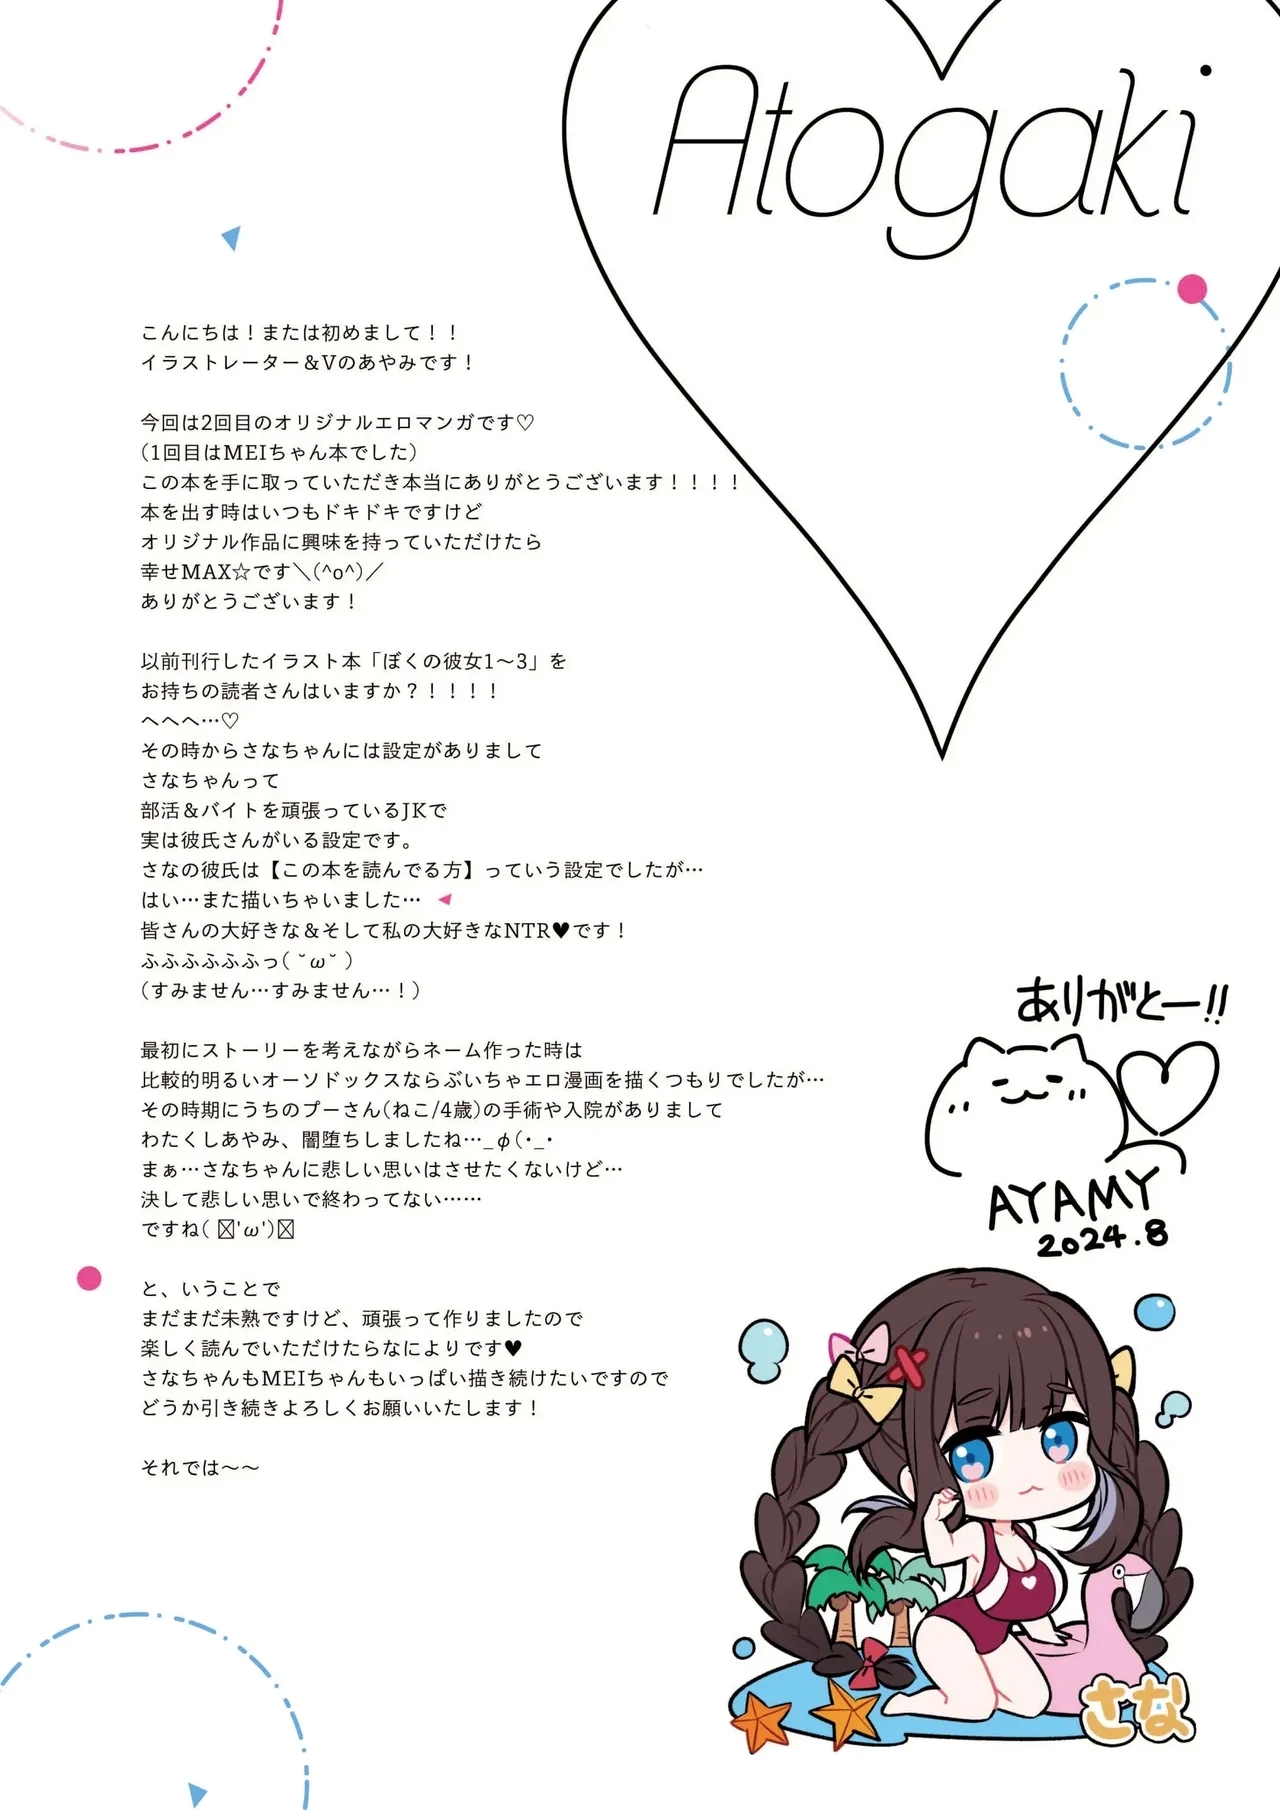 Atogaki
こんにちは！または初めまして！！
イラストレーター＆Vのあやみです！
今回は2回目のオリジナルエロマンガです♡
（1回目はMEIちゃん本でした）
この本を手に取っていただき本当にありがとうございます！！！！
本を出す時はいつもドキドキですけど
オリジナル作品に興味を持っていただけたら
幸せMAX☆です＼(^o^)／
ありがとうございます！
以前刊行したイラスト本「ぼくの彼女1～3」を
お持ちの読者さんはいますか？！！！！
へへへ…♡
その時からさなちゃんには設定がありまして
さなちゃんって
部活＆バイトを頑張っているJKで
実は彼氏さんがいる設定です。
さなの彼氏は【この本を読んでる方】っていう設定でしたが…
はい…また描いちゃいました…
皆さんの大好きな＆そして私の大好きなNTR♥です！
ふふふふふふっ( ˘ω˘ )
（すみません…すみません…！）
最初にストーリーを考えながらネーム作った時は
比較的明るいオーソドックスならぶいちゃエロ漫画を描くつもりでしたが…
その時期にうちのプーさん（ねこ/4歳）の手術や入院がありまして
わたくしあやみ、闇堕ちしましたね…_φ(･_･
まぁ…さなちゃんに悲しい思いはさせたくないけど…
決して悲しい思いで終わってない……
ですね( ☒'ω')☒
と、いうことで
まだまだ未熟ですけど、頑張って作りましたので
楽しく読んでいただけたらなによりです♥
さなちゃんもMEIちゃんもいっぱい描き続けたいですので
どうか引き続きよろしくお願いいたします！
それでは～～
ありがとー!!
AYAMY
2024.8
さな